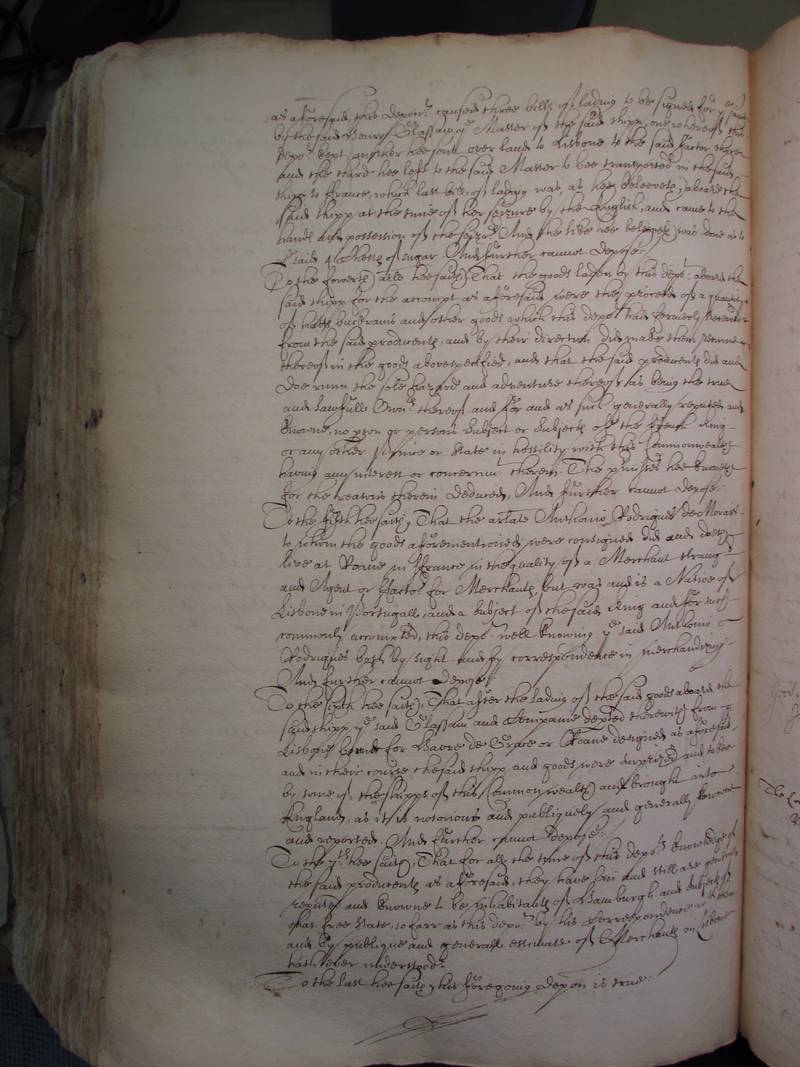 as aforesaid, this depon.t caused three bills of lading to be signed for
by the said Henry Classaw y.e Master of the said shipp, one whereof this
depo.t kept, another hee sent over land to Lisbone to the said factor there
and the third hee left to the said Master to bee transported in the said
shipp to France, which last bill of lading was, as hee beleeveth, aboard the
said shipp at the time of her seizure by the English, and came to the
hands and possession of the seizo.rs And the like hee beleeveth was done as to
said 4 chests of sugar. And further cannot depose.
To the fowerth arle hee saith, That the goods laden by this depo.t aboard the
said shipp for the accompt as aforesaid were the proceeds of a quantity
of hatts, buckrams and other goods which this depo.t had formerly received
from the said producents, and by their direction did make them returnes
thereof in the goods abovespecified, and that the said producents did and
doe runn the sole hazard and adventure thereof as being the true
and lawfull Own.rs thereof and for and as such generally reputed and
knowne, no pson or persons subject or subjects of the French King
or any other Prince or State in hostility with this Commonwealth
having any interest or concernm.t therein. The pmisses hee knoweth
for the reasons therein deduced, And further cannot depose.
To the fifth hee saith, That the arlate Anthonio Rodrigues de Morais
to whom the goods aforementioned were consigned did and doeth
live at Roane in France in the quality of a Merchant strang.r
and Agent or Facto.r for Merchants, but was and is a Native of
Lisbone in Portugall, and a subject of the said King and for such
commonly accompted, this depo.t well knowing y.e said Anthonio
Rodrigues both by sight and by correspondence in merchandizing.
And further cannot depose.
To the sixth hee saith, That after the lading of the said goods aboard the
said shipp y.e said Classaw and Companie depted therewith from
Lisbone bound for Havre de Grace or Roane designed as aforesaid,
and in their course the said shipp and goods were surprized and taken
by some of the shipps of this Commonwealth and brought into
England, as it is notorious and publiquely and generally knowne
and reported. And further cannot depose.
To the 7.th hee saith, That for all the time of this depo.ts knowledge of
the said producents as aforesaid, they have bin and still are generally
reputed and knowne to be inhabitants of Hamburgh and subjects of
that free State, so farr as this depo.t by his Correspondence
and by publique and generall estimate of Merchants in Lisbone
hath ever understood.
To the last hee saith, his foregoing depon is true.